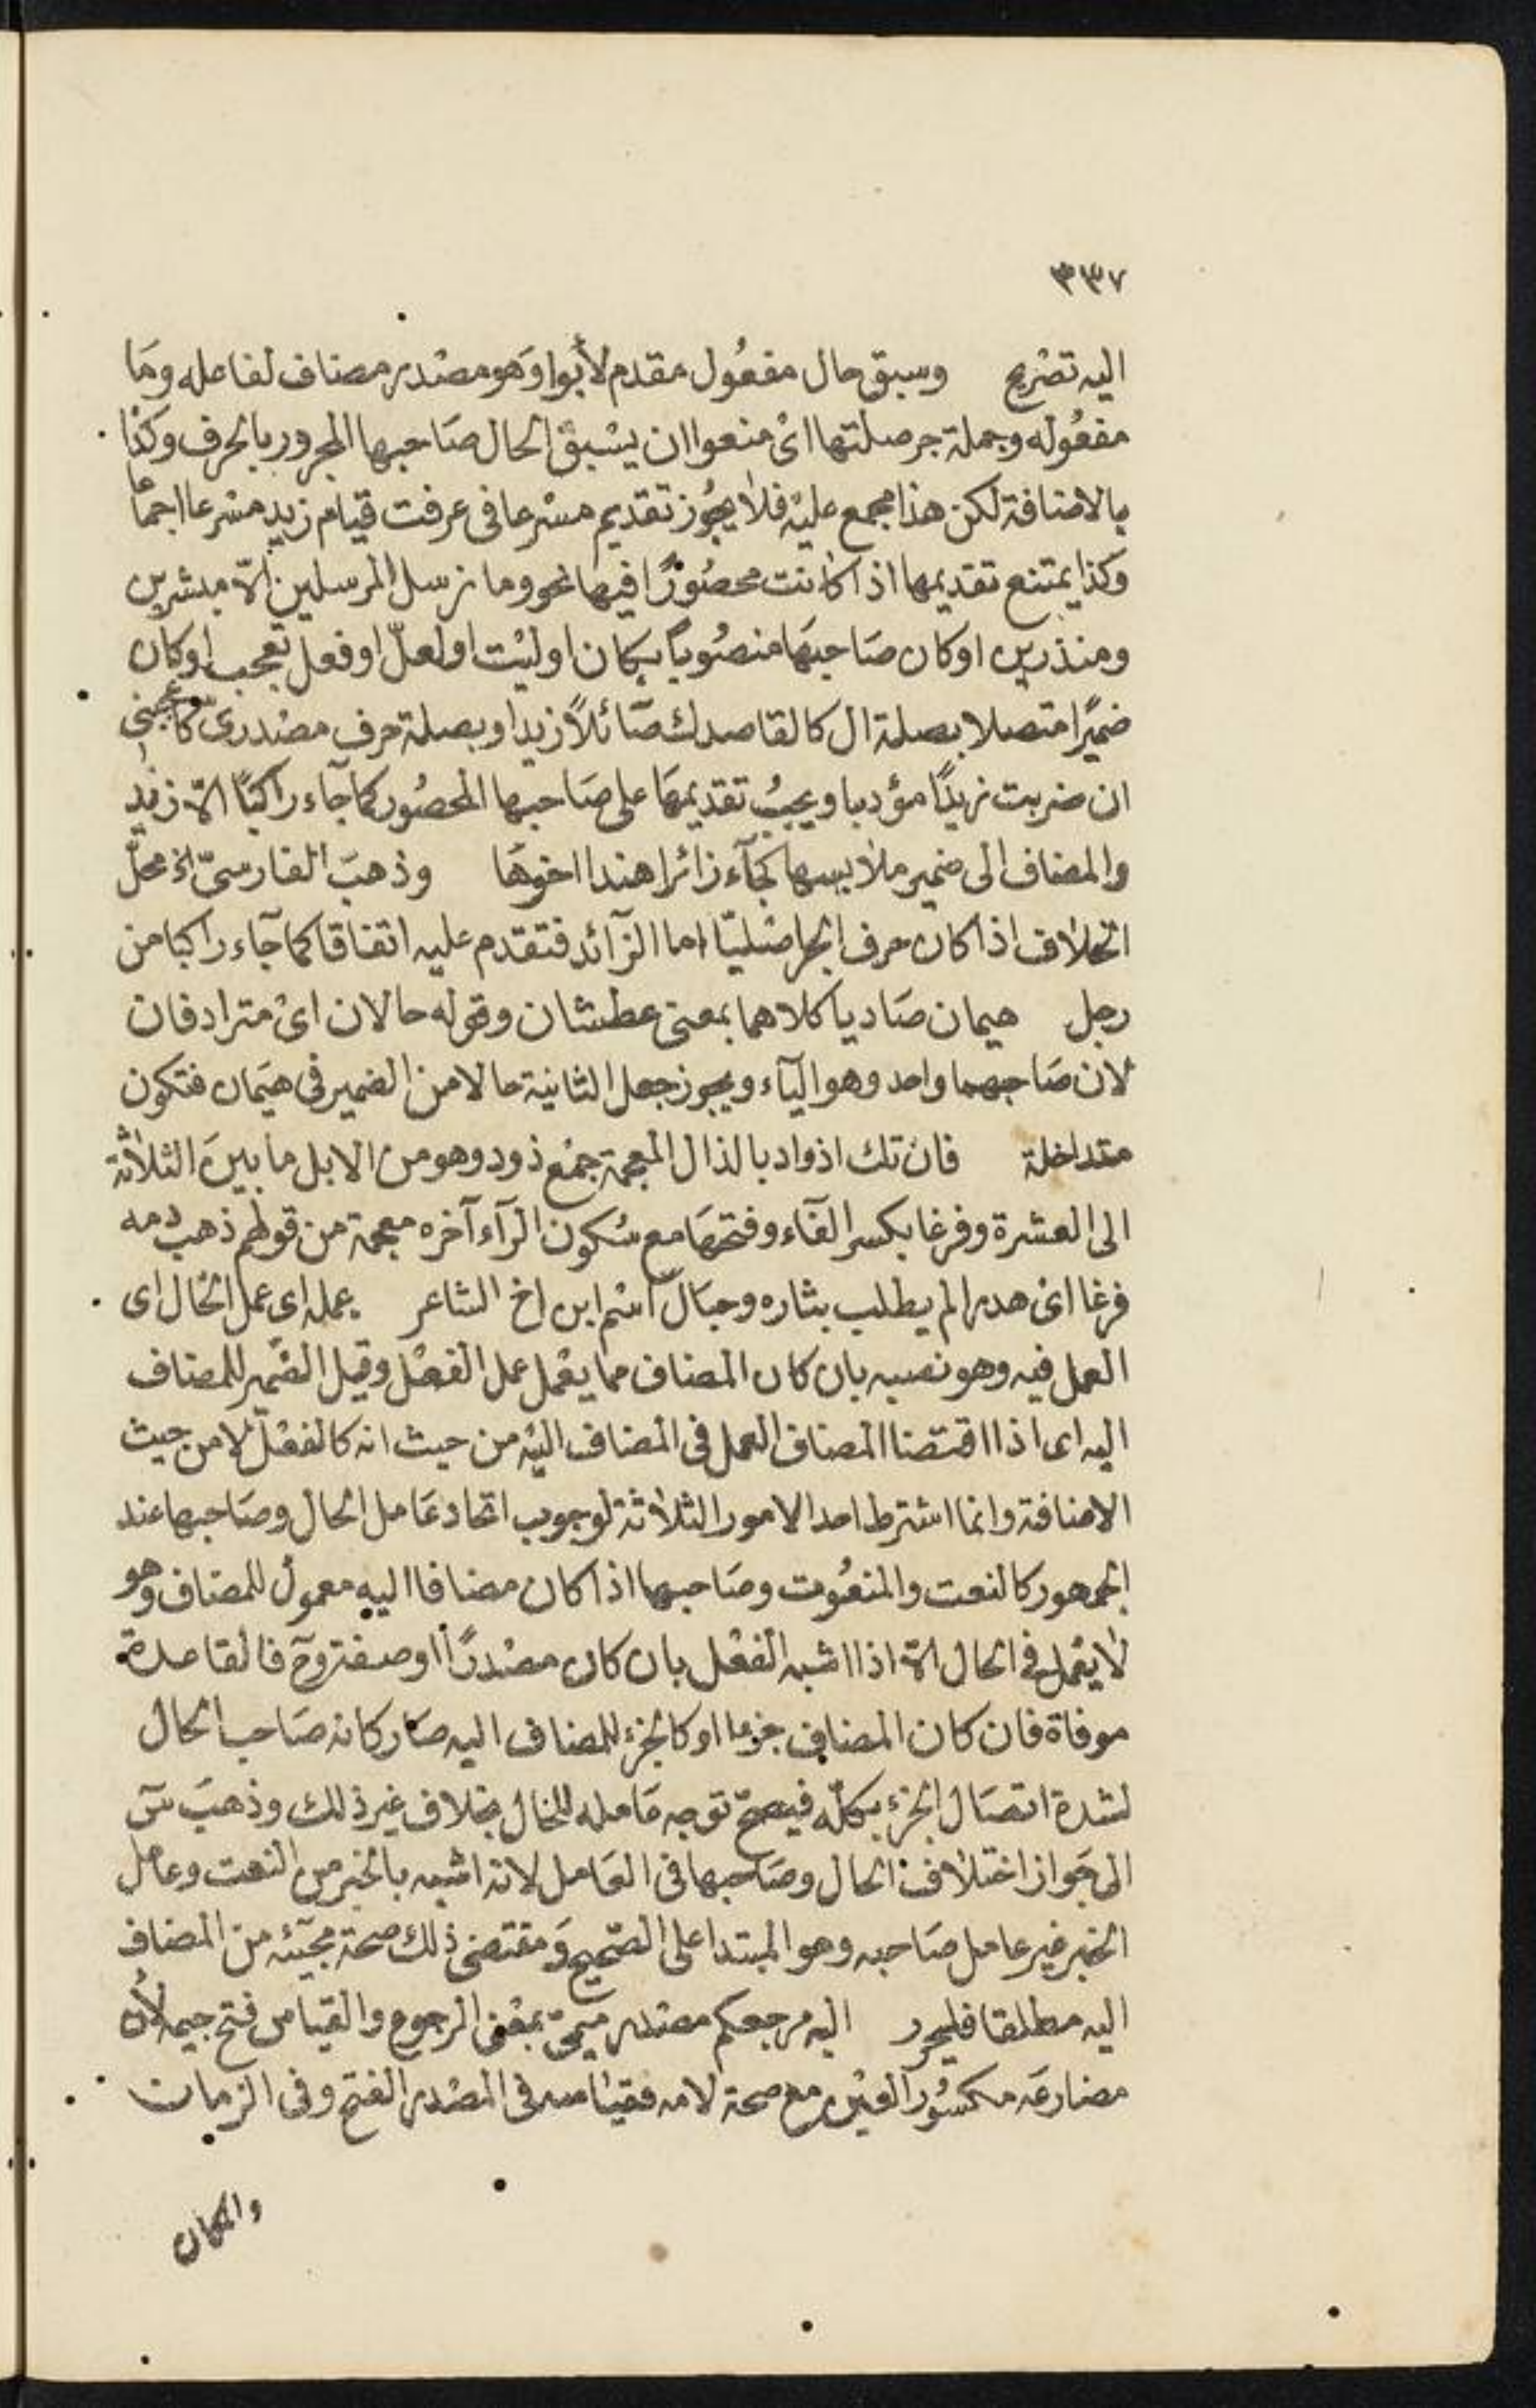 ٣٣٧
اليه تصْريح وسبق حال مفعُول مقدم لأبوا وَهو مصْدر مضاف لفاعله ومَا
مفعُوله وجملة جر صلتها اىْ منعوا ان يسْبق الحال صَاحبها المجرور بالحرف وكذا
بالاضافة لكن هذا مجمع عليْه فلا يجُوز تقديم مسْرعا فى عرفت قيام زيد مسْرعا اجماعا
وكذا يمتنع تقديمها اذا كانت محصُورًا فيها نحو وما نرسل المرسلين الّا مبشرين
ومنذرين او كان صَاحبهَا منصُوباً بكان او ليْت او لعلّ او فعل تعجب او كان
ضميرًا متصلا بصلة ال كالقاصدك سَائلاً زيد او بصلة حرف مصْدرى كاعجبنى
ان ضربت زيدًا مؤدبا ويجبُ تقديمهَا على صَاحبها المحصُور كما جآء راكبًا الّا زيد
والمضاف الى ضمير ملابسها كجآء زائرا هندا اخوهَا وذهبَ الفارسىّ الخ محلّ
الخلاف اذا كان حرف الجر اصْليّا اما الزآئد فتقدم عليه اتفاقا كما جآء راكبا من
رجل هيمان صَاديا كلاهما بمعنى عطشان وقوله حالان اىْ مترادفان
لان صَاحبهما واحد وهو اليآء ويجوز جعل الثانية حالا من الضمير فى هيَمان فتكون
متداخلة فان تك اذواد بالذال المعجمة جمْع ذود وهو من الابل ما بينَ الثلاثة
الى العشرة وفرغا بكسر الفآء وفتحهَا مع سُكون الرآء آخره معجمة من قولهم ذهب دمه
فرغا اىْ هدرا لم يطلب بثاره وحبَال اسْم ابن اخ الشاعر عمله اى عمل الحال اى
العمل فيه وهو نصبه بان كان المضاف مما يعْمل عمل الفعْل وقيل الضمير للمضاف
اليه اى اذا اقتضا المضاف العمل فى المضاف اليْه من حيث انه كالفعْل لا من حيث
الاضافة وانما اشترط احد الامور الثلاثة لوجوب اتحاد عَامل الحال وصَاحبها عند
الجمهور كالنعت والمنعُوت وصَاحبها اذا كان مضافا اليه معمول للمضاف وهو
لا يعْمل فى الحال الّا اذا اشبه الفعْل بان كان مصْدرًا او صفة وحَ فالقاعدة
موفاة فان كان المضاف جزءا او كالجزء للمضاف اليه صَار كانه صَاحب الحال
لشدة اتصَال الجزء بكلّه فيصحّ توجه عَامله للحال بخلاف غير ذلك وذهبَ سَ
الى جَواز اختلاف الحال وصَاحبها فى العَامل لانه اشبه بالخبر من النعت وعامل
الخبر غير عامل صَاحبه وهو المبتدا على الصّحيح وَمقتضى ذلك صحة مجيئه من المضاف
اليه مطلقا فليحرر اليه مرجعكم مصْدر ميمىّ بمعْنى الرجوع والقياس فتح جيمه لأن
مضارعَه مكسُور العيْن مع صحة لامه فقياسه فى المصْدر الفتح وفى الزمان
والمكان